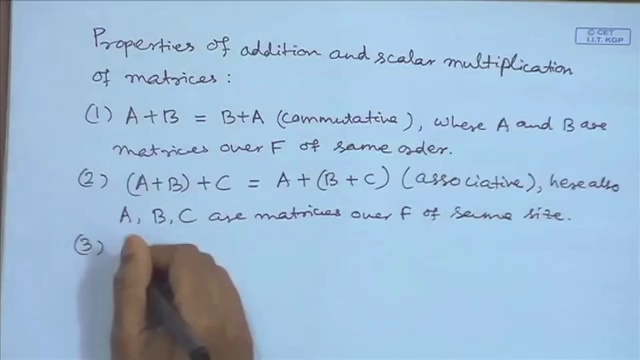 © CET
I.I.T. KGP
Properties of addition and scalar multiplication
of matrices :
(1) A+B = B+A (commutative), where A and B are
matrices over F of same order.
(2) (A+B)+C = A+(B+C) (associative), here also
A, B, C are matrices over F of same size.
(3)